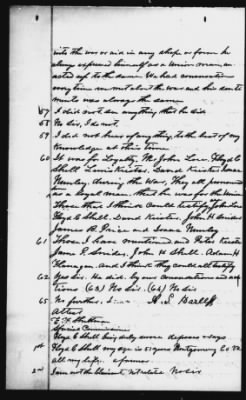 into the war or aid in any shape or form he
always expressed himself as a union man and
acted up to the same. We had conversation
every time we met about the war and his
was always the same
57 I did not do anything that he did
58 No Sir, I do not.
59 I did not hear of anything, to the best of my
Knowledge at this time
60 It was for Loyalty. Mr John Love. Floyd G
Shell. David Kirster.
Nunley. during the War, They all
as a Loyal man. that he was for the Union
Those that I think could testify John Love
Floyd G. Shell. David Kirster. John H. Snider
James B. Price and Isaac Nunley
61 Those I have mentioned and Peter Kirster
James P. Snider. John H Shell. Adam H
Flanagan. And I think they could all testify
62 Yes Sir. He did. by our conversations and
tions (63) No Sir. (64) No Sir
65 No further, Sir. A. L.
Attest
Special Commissioner
Floyd G Shell being duly sworn deposes & says
1st Floyd G Shell my age is 51 years Montgomery Co Va
all my life. a farmer
2nd I am not the Claimant, not related No Sir